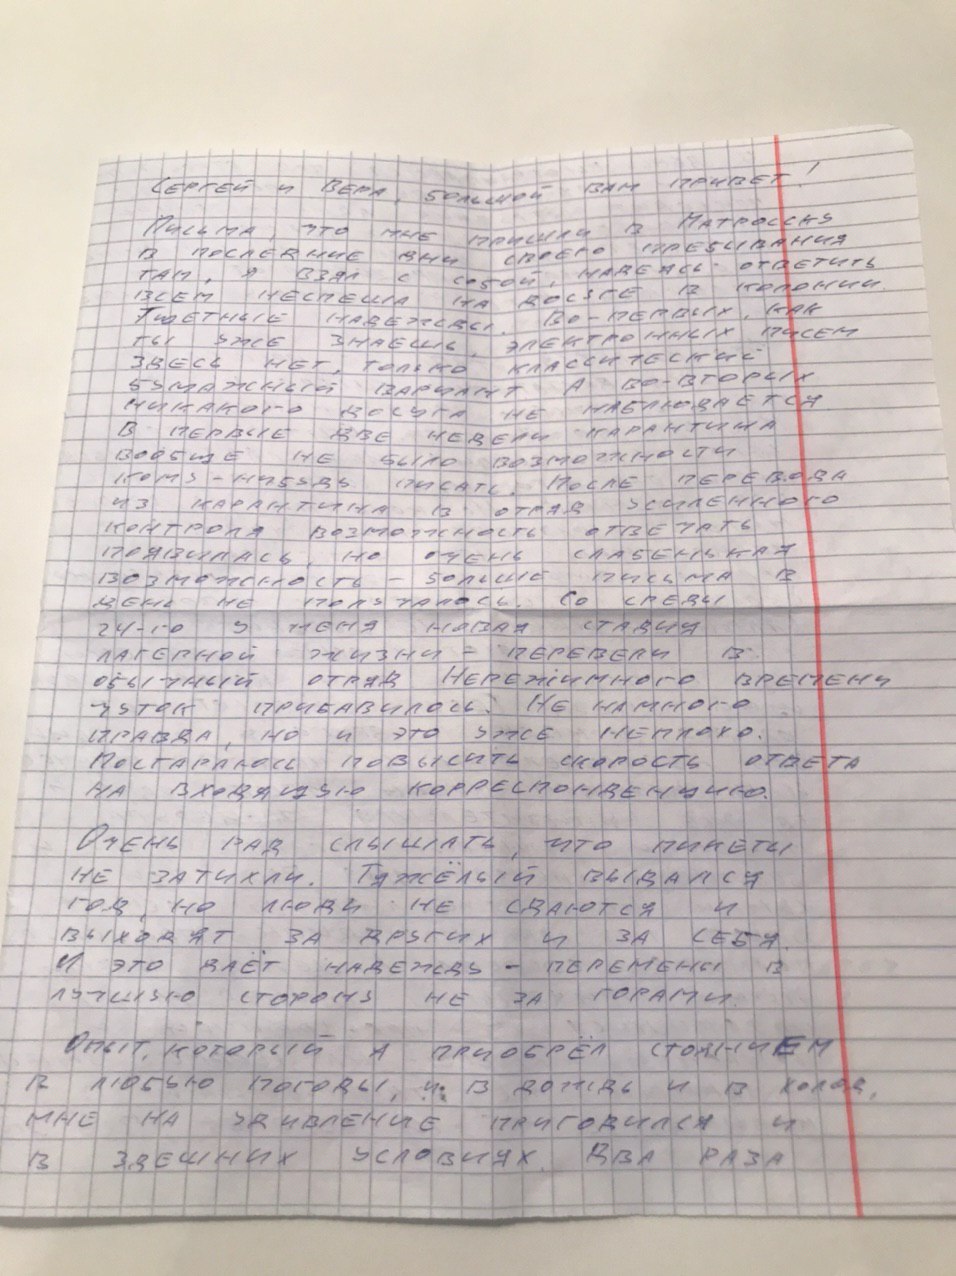 Сергей и Вера, большой вам привет!
Письма, что мне пришли в Матросску
в последние дни своего пребывания
там, я взял с собой, надеясь ответить
всем неспеша на досуге в колонии.
Тщетные надежды. Во-первых, как
ты уже знаешь, электронных писем
здесь нет, только классический
бумажный вариант. А во-вторых
никакого досуга не наблюдается.
В первые две недели карантина
вообще не было возможности
кому-нибудь писать. После перевода
из карантина в отряд усиленного
контроля возможность отвечать
появилась, но очень слабенькая
возможность - больше письма в
день не получалось. Со среды
24-го у меня новая стадия
лагерной жизни - перевели в
обычный отряд. Нережимного времени
чуток прибавилось. Не намного
правда, но и это уже неплохо.
Постараюсь повысить скорость ответа
на входящую корреспонденцию.
Очень рад слышать, что пикеты
не затихли. Тяжёлый выдался
год, но люди не сдаются и
выходят за других и за себя.
И это даёт надежду - перемены в
лучшую сторону не за горами.
Опыт, который я приобрёл стоянием
в любую погоду, и в дождь и в холод,
мне на удивление пригодился и
в здешних условиях. Два раза